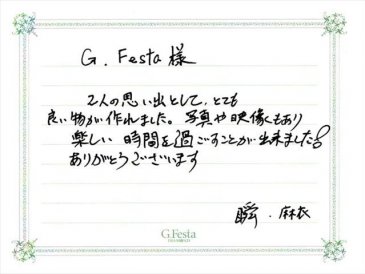 G. Festa 様
2人の思い出として、とても
良い物が作れました。写真や映像もあり
楽しい時間を過ごすことが出来ました!
ありがとうございます
瞬・麻衣
G.Festa